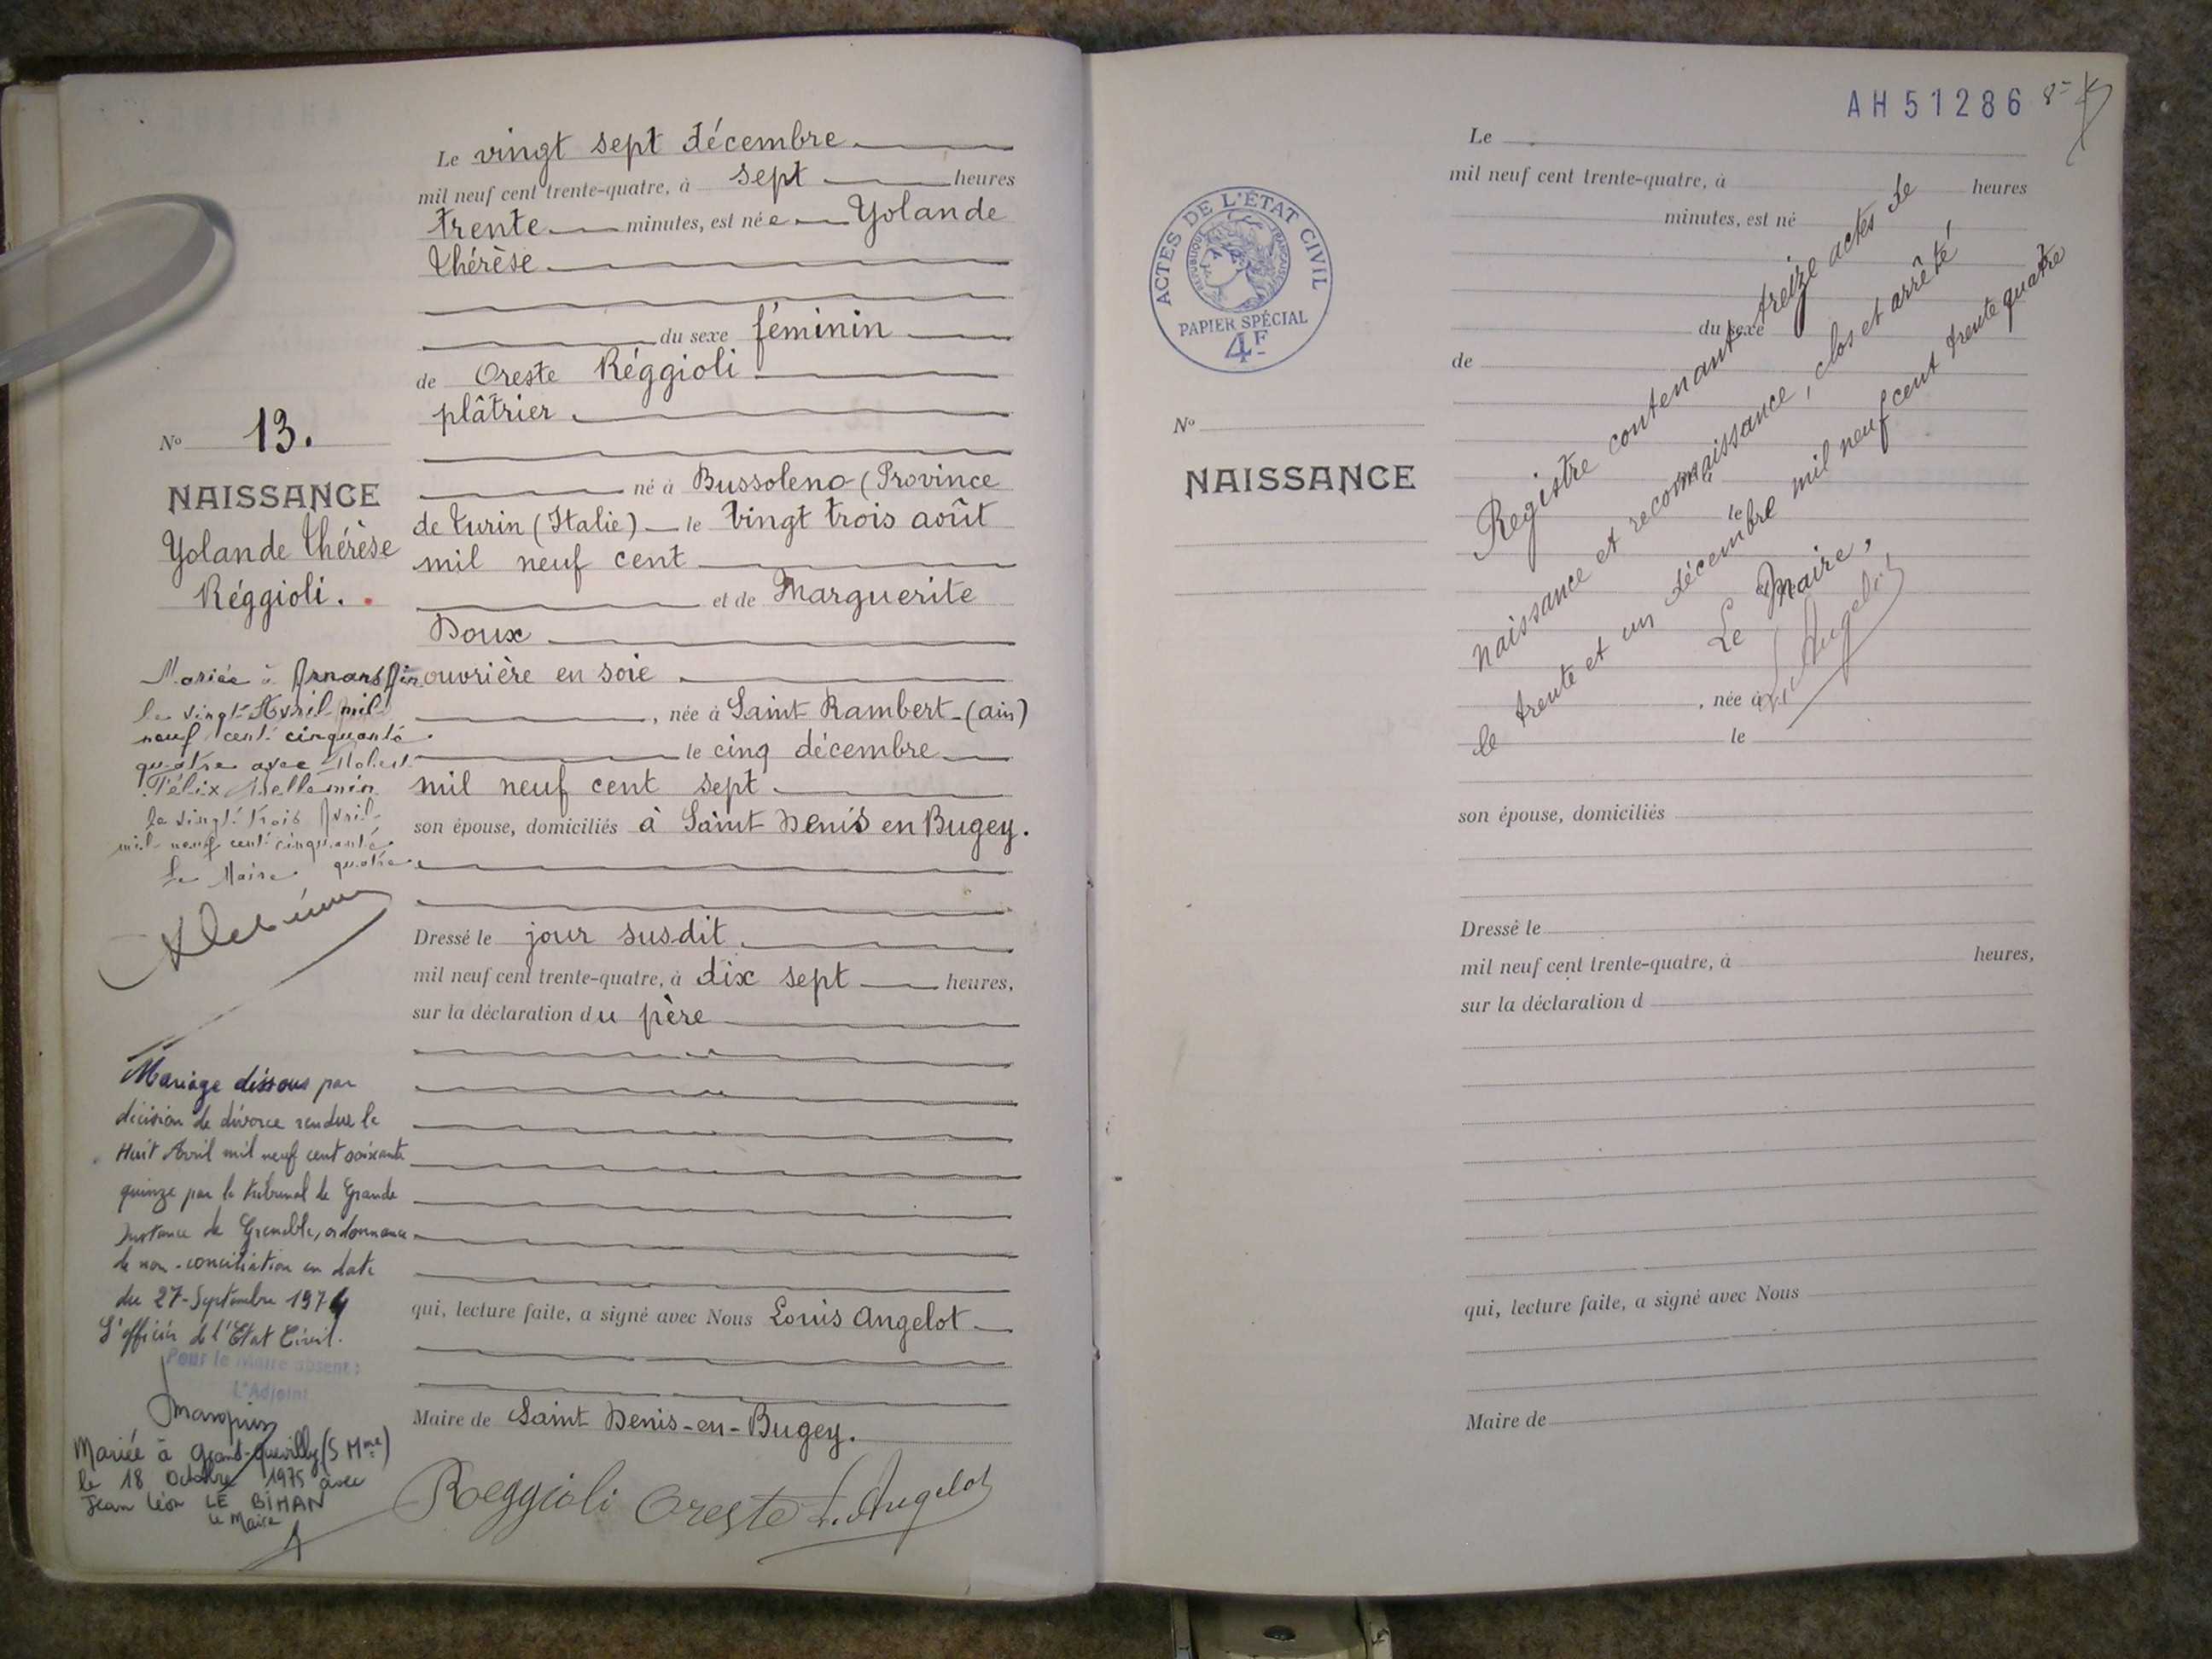 Le vingt sept décembre
mil neuf cent trente-quatre, à sept heures
trente minutes, est née Yolande
Thérèse
du sexe féminin
de Oreste Réggioli
plâtrier
né à Bussoleno (Province
de Turin (Italie) le vingt trois août
mil neuf cent
et de Marguerite
Doux
ouvrière en soie
, née à Saint Rambert (ain)
le cinq décembre
mil neuf cent sept
son épouse, domiciliés à Saint Denis en Bugey.
Dressé le jour susdit
mil neuf cent trente-quatre, à dix sept heures,
sur la déclaration du père
qui, lecture faite, a signé avec Nous Louis Angelot
Maire de Saint Denis-en-Bugey.
Reggioli Oreste L. Angelot
No 13.
NAISSANCE
Yolande Thérèse
Réggioli.
Mariée à Arnans Ain
le vingt Avril mil
neuf cent cinquante
quatre avec Robert
Félix Bellemin
le vingt trois Avril
mil neuf cent cinquante
quatre
Le Maire
Mariage dissous par
décision de divorce rendue le
Huit Avril mil neuf cent soixante
quinze par le tribunal de Grande
Instance de Grenoble, ordonnance
de non-conciliation en date
du 27 Septembre 1974
L'officier de l'Etat Civil.
Pour le Maire absent :
L'Adjoint
Mariée à Grand-Quevilly (S Mme)
le 18 Octobre 1975 avec
Jean Léon LE BIHAN
Le Maire
AH51286
ACTES DE L'ÉTAT CIVIL
RÉPUBLIQUE FRANÇAISE
PAPIER SPÉCIAL
4F
No
NAISSANCE
Le
mil neuf cent trente-quatre, à heures
minutes, est né
du sexe
de
le
, née à
le
son épouse, domiciliés
Dressé le
mil neuf cent trente-quatre, à heures,
sur la déclaration d
qui, lecture faite, a signé avec Nous
Maire de
Registre contenant treize actes de
naissance et reconnaissance, clos et arrêté
le trente et un décembre mil neuf cent trente quatre
Le Maire,
L. Angelot